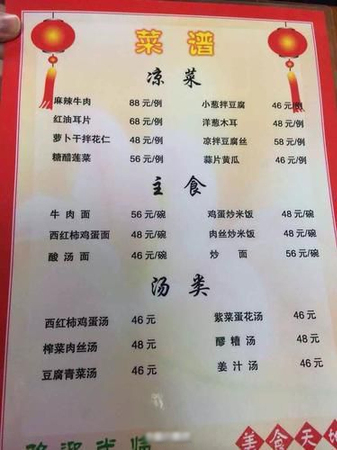 菜 谱
凉 菜
麻辣牛肉 88 元/例 小葱拌豆腐 46 元/例
红油耳片 68 元/例 洋葱木耳 48 元/例
萝卜干拌花仁 48 元/例 凉拌豆腐丝 58 元/例
糖醋莲菜 56 元/例 蒜片黄瓜 46 元/例
主 食
牛 肉 面 56 元/碗 鸡蛋炒米饭 48 元/碗
西红柿鸡蛋面 48 元/碗 肉丝炒米饭 48 元/碗
酸 汤 面 46 元/碗 炒 面 56 元/碗
汤 类
西红柿鸡蛋汤 46 元 紫菜蛋花汤 46 元
榨菜肉丝汤 48 元 醪 糟 汤 48 元
豆腐青菜汤 46 元 姜 汁 汤 46 元
美食天地